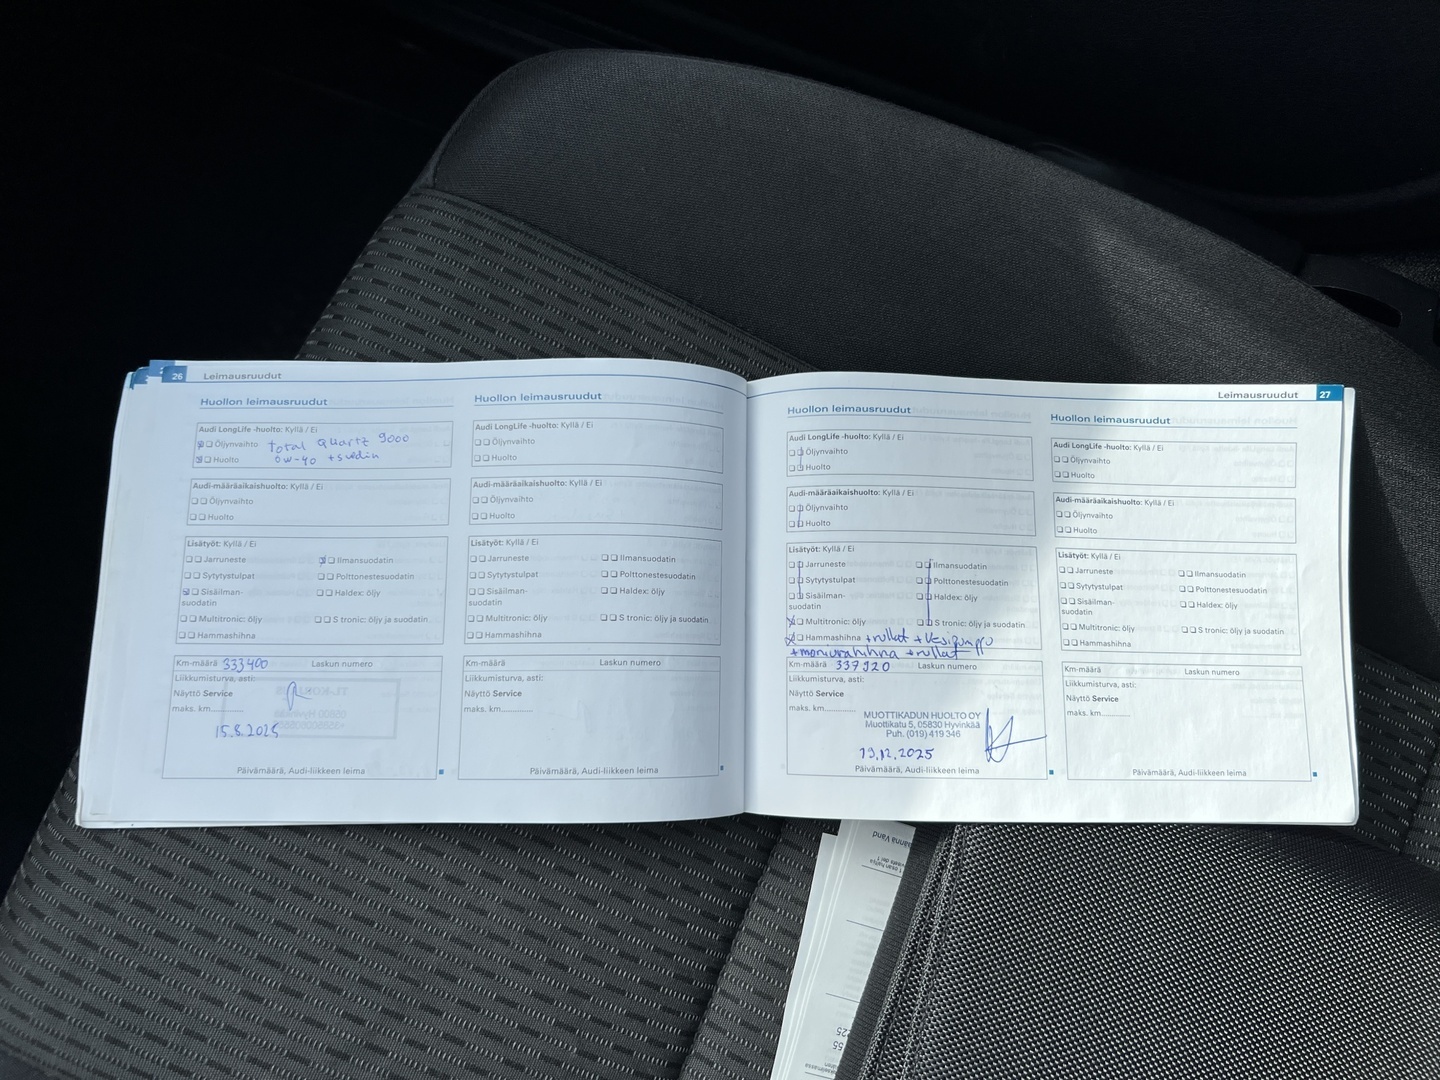 26 Leimausruudut
Huollon leimausruudut
Audi LongLife -huolto: Kyllä / Ei
Öljynvaihto Total Quartz 9000
Huolto 0w-40 + suodin
Audi-määräaikaishuolto: Kyllä / Ei
Öljynvaihto
Huolto
Lisätyöt: Kyllä / Ei
Jarruneste Ilmansuodatin
Sytytystulpat Polttonestesuodatin
Sisäilman- Haldex: öljy
suodatin
Multitronic: öljy S tronic: öljy ja suodatin
Hammashihna
Km-määrä 333400 Laskun numero
Liikkumisturva, asti:
Näyttö Service
maks. km..............
15.8.2025
Päivämäärä, Audi-liikkeen leima
Huollon leimausruudut
Audi LongLife -huolto: Kyllä / Ei
Öljynvaihto
Huolto
Audi-määräaikaishuolto: Kyllä / Ei
Öljynvaihto
Huolto
Lisätyöt: Kyllä / Ei
Jarruneste Ilmansuodatin
Sytytystulpat Polttonestesuodatin
Sisäilman- Haldex: öljy
suodatin
Multitronic: öljy S tronic: öljy ja suodatin
Hammashihna
Km-määrä Laskun numero
Liikkumisturva, asti:
Näyttö Service
maks. km..............
Päivämäärä, Audi-liikkeen leima
Leimausruudut 27
Huollon leimausruudut
Audi LongLife -huolto: Kyllä / Ei
Öljynvaihto
Huolto
Audi-määräaikaishuolto: Kyllä / Ei
Öljynvaihto
Huolto
Lisätyöt: Kyllä / Ei
Jarruneste Ilmansuodatin
Sytytystulpat Polttonestesuodatin
Sisäilman- Haldex: öljy
suodatin
Multitronic: öljy S tronic: öljy ja suodatin
Hammashihna + rullat + Vesipumppu
+ moniurahihna + rullat
Km-määrä 337920 Laskun numero
Liikkumisturva, asti:
Näyttö Service
maks. km..............
MUOTTIKADUN HUOLTO OY
Muottikatu 5, 05830 Hyvinkää
Puh. (019) 419 346
19.12.2025
Päivämäärä, Audi-liikkeen leima
Huollon leimausruudut
Audi LongLife -huolto: Kyllä / Ei
Öljynvaihto
Huolto
Audi-määräaikaishuolto: Kyllä / Ei
Öljynvaihto
Huolto
Lisätyöt: Kyllä / Ei
Jarruneste Ilmansuodatin
Sytytystulpat Polttonestesuodatin
Sisäilman- Haldex: öljy
suodatin
Multitronic: öljy S tronic: öljy ja suodatin
Hammashihna
Km-määrä Laskun numero
Liikkumisturva, asti:
Näyttö Service
maks. km..............
Päivämäärä, Audi-liikkeen leima